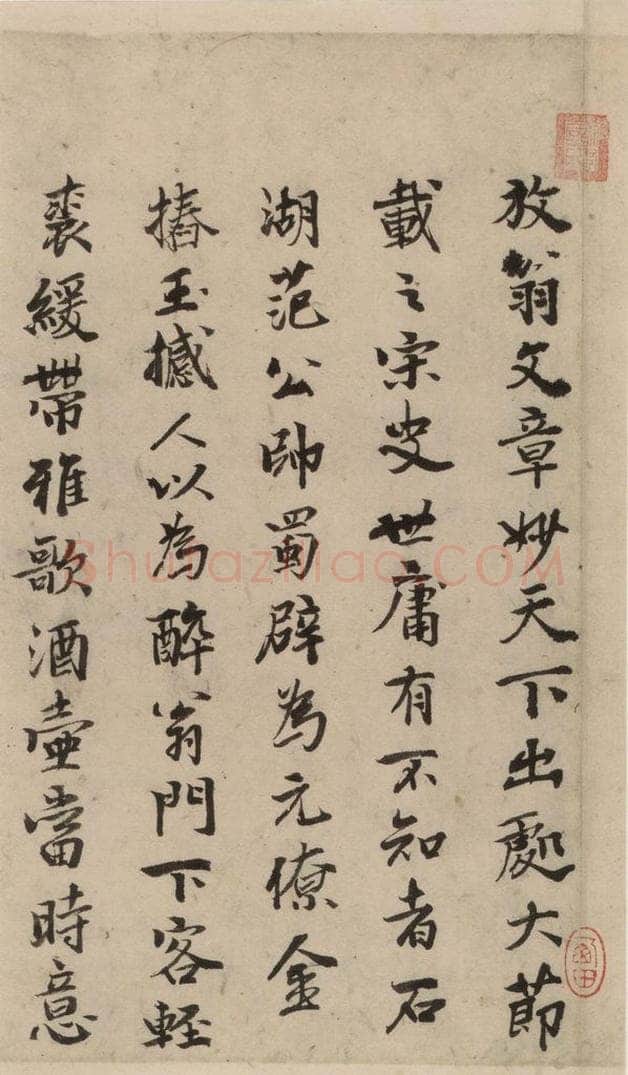 放翁文章妙天下出處大節
載之宋史世庸有不知者石
湖范公帥蜀辟為元僚金
樁玉撼人以為醉翁門下客輕
裘緩帶雅歌酒壺當時意
ShufaziMao.COM